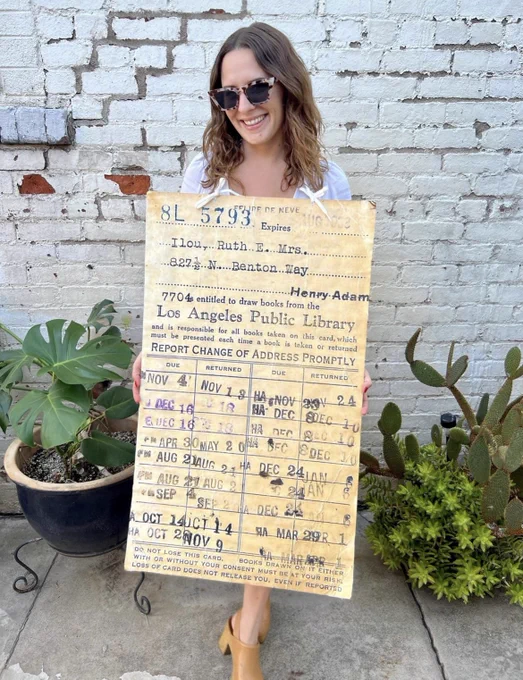 FELIPE DE NEVE
8L 5793
Expires
Ilou, Ruth E. Mrs.
827½ N. Benton Way
Henry Adam
7704 entitled to draw books from the
Los Angeles Public Library
and is responsible for all books taken on this card, which
must be presented each time a book is taken or returned
REPORT CHANGE OF ADDRESS PROMPTLY
DUE RETURNED DUE RETURNED
NOV 4 NOV 18 HA NOV 29 NOV 24
DEC 16 18 HA DEC 8 DEC 10
DEC 16 18 HA DEC 8 DEC 10
APR 30 MAY 20 HA DEC 8
AUG 21 AUG 24 HA DEC 24 JAN 8
AUG 21 AUG 2 24 JAN 8
SEP 4 SEP 2 HA DEC 24 8
HA OCT 14 OCT 14 HA MAR 29 R 1
HA OCT 28 NOV 9 HA MAR
DO NOT LOSE THIS CARD. BOOKS DRAWN ON IT EITHER
WITH OR WITHOUT YOUR CONSENT MUST BE AT YOUR RISK.
LOSS OF CARD DOES NOT RELEASE YOU, EVEN IF REPORTED